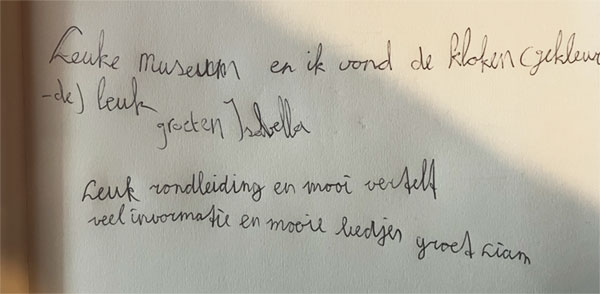 Leuke museum en ik vond de kloken (gekleur
-de) leuk
groeten Isabella
Leuk rondleiding en mooi vertelt
veel invormatie en mooie liedjen
groet Liam